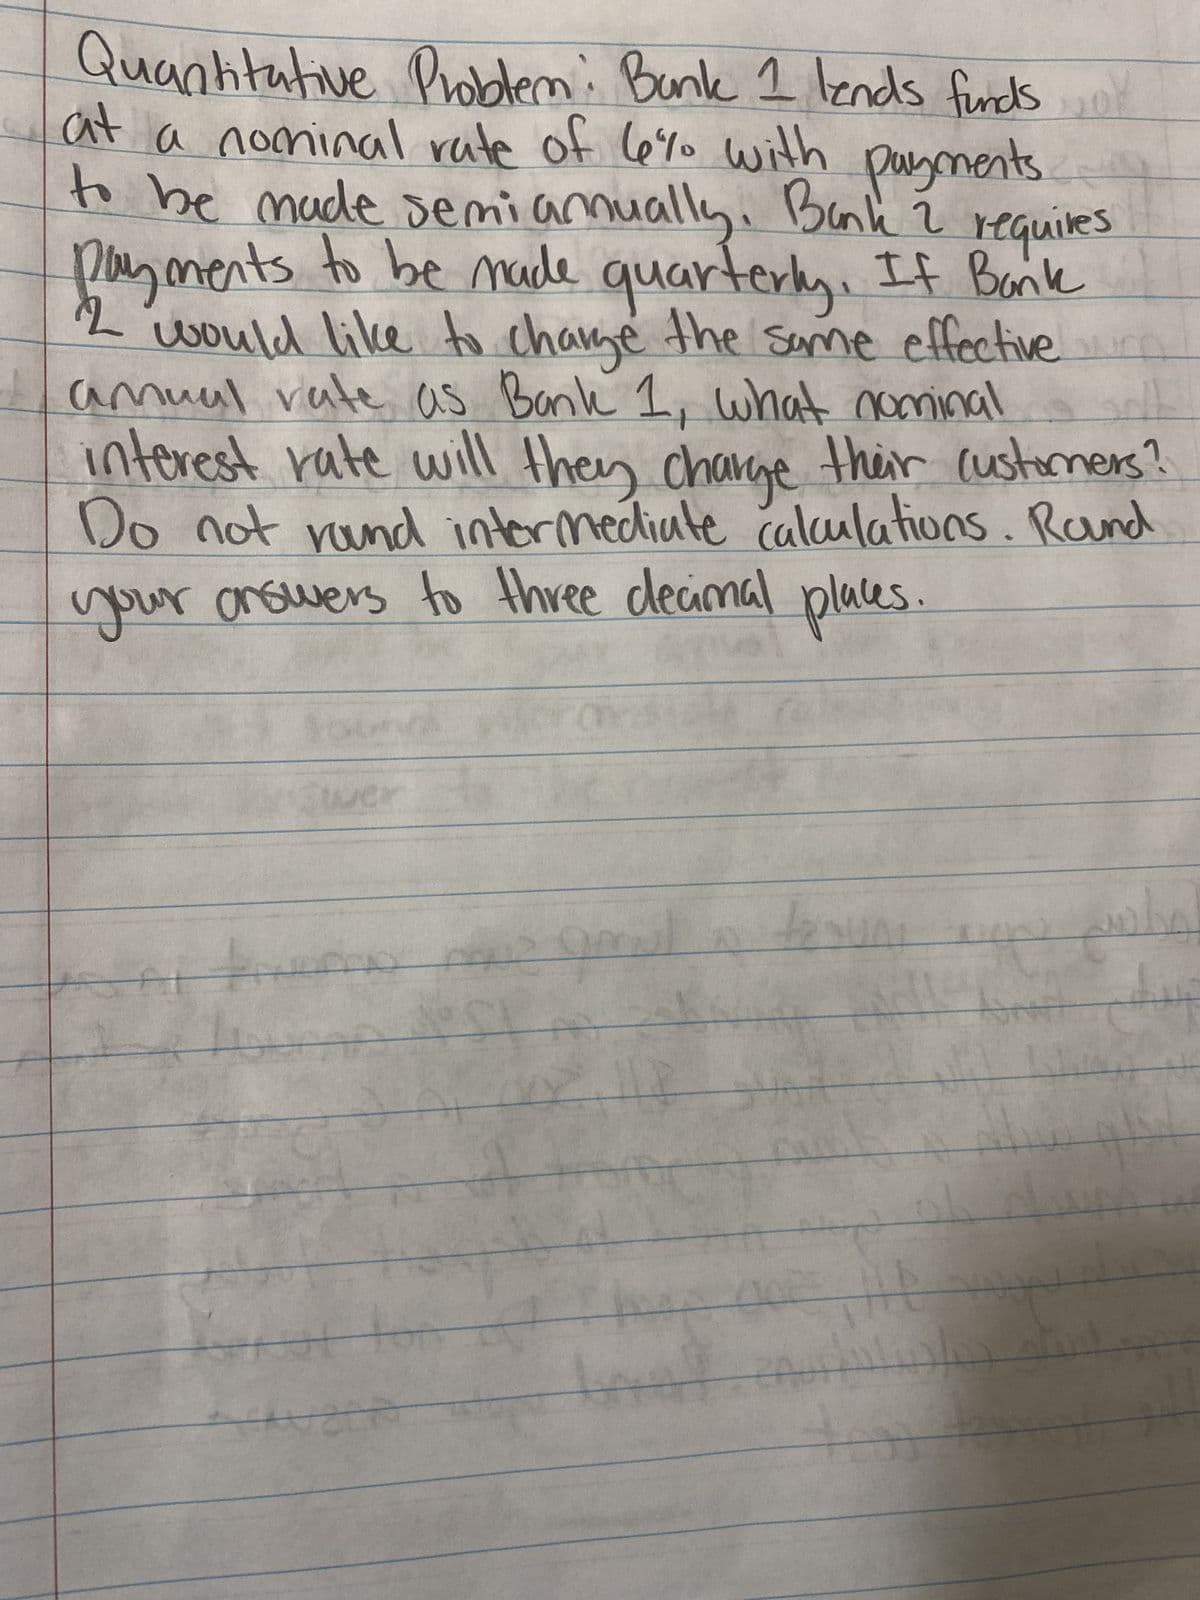 Quantitative Problem: Bank 1 lends funds
at a nominal rate of 6% with payments
to be made semiannually. Bank 2 requires
payments to be made quarterly. If Bank
2 would like to charge the same effective
annual rate as Bank 1, what nominal
interest rate will they charge their customers?
Do not round intermediate calculations. Round
your answers to three decimal places.